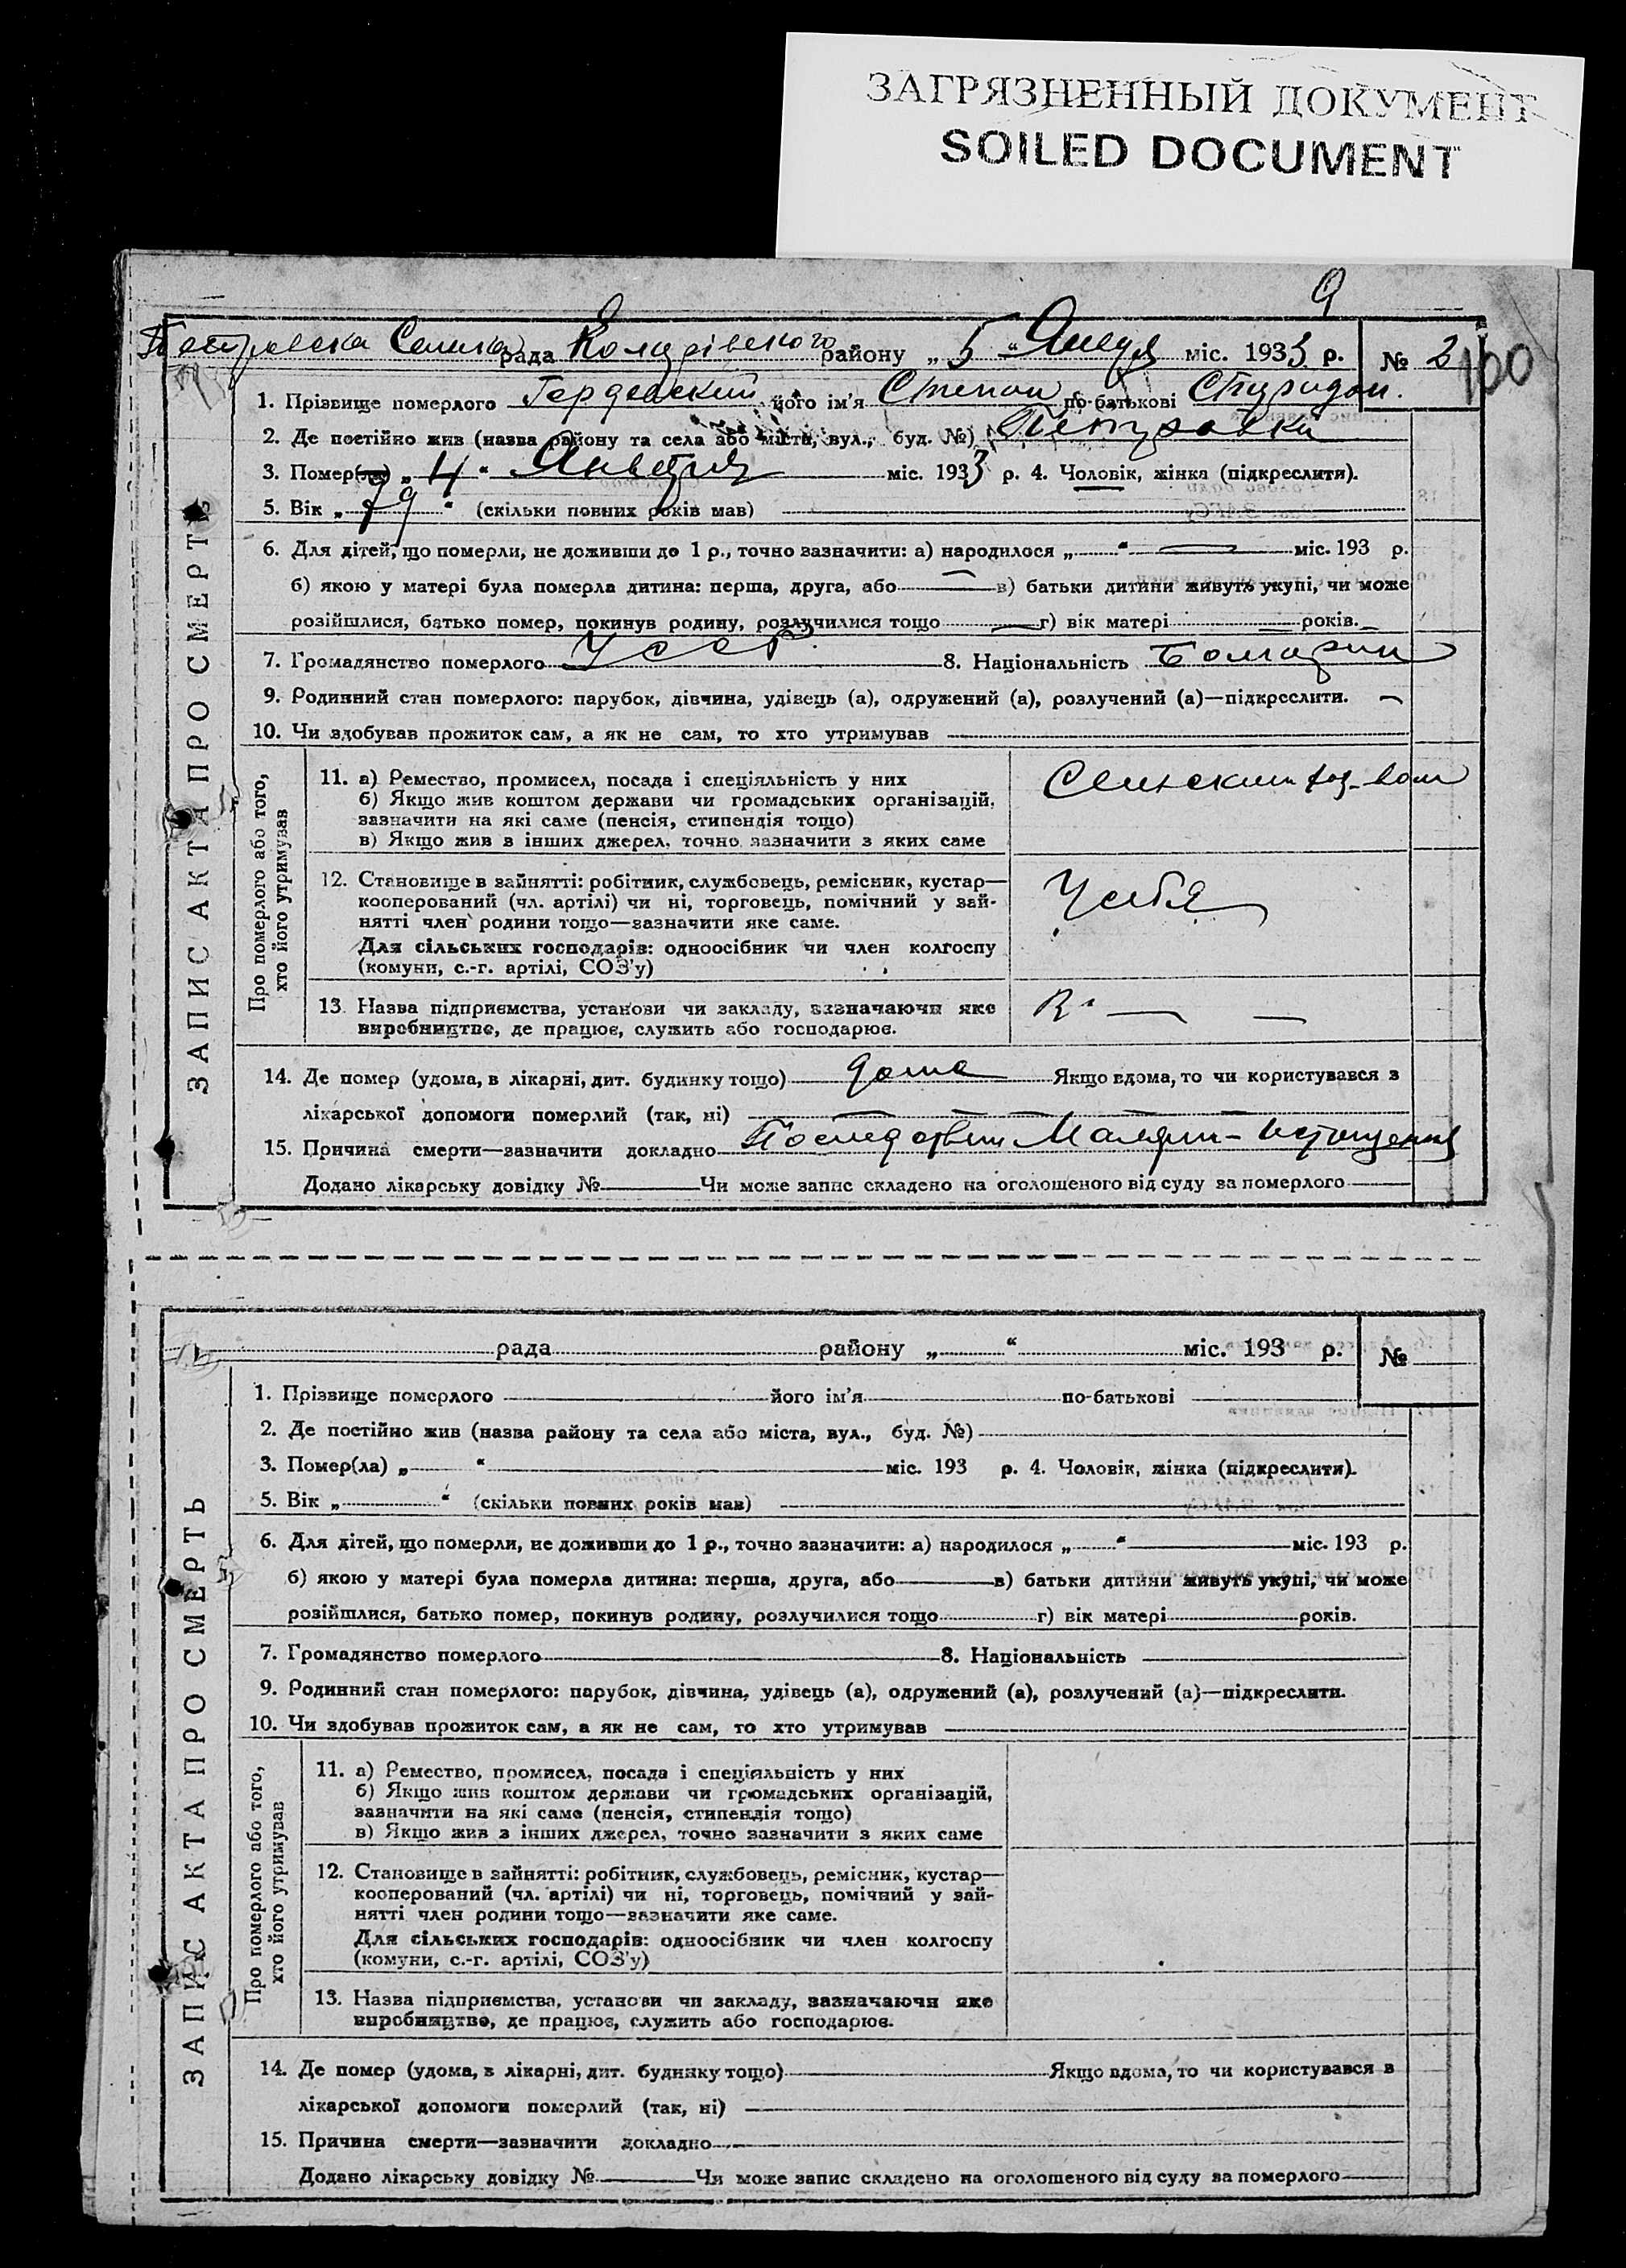 ЗАГРЯЗНЕННЫЙ ДОКУМЕНТ
SOILED DOCUMENT
9
рада району „5“ міс. 1933 р. № 2
160
1. Прізвище померлого його ім'я Степан по-батькові
2. Де постійно жив (назва району та села або міста, вул., буд. №) Петровка
3. Помер(ла) „4“ Января міс. 1933 р. 4. Чоловік, жінка (підкреслити).
5. Вік „79“ (скільки повних років мав)
6. Для дітей, що померли, не доживши до 1 р., точно зазначити: а) народилося „ “ міс. 193 р.
б) якою у матері була померла дитина: перша, друга, або в) батьки дитини живуть укупі, чи може
розійшлися, батько помер, покинув родину, розлучилися тощо г) вік матері років.
7. Громадянство померлого УССР 8. Національність Болгарин
9. Родинний стан померлого: парубок, дівчина, удівець (а), одружений (а), розлучений (а)—підкреслити.
10. Чи здобував прожиток сам, а як не сам, то хто утримував
ЗАПИС АКТА ПРО СМЕРТЬ
Про померлого або того, хто його утримував
11. а) Ремество, промисел, посада і спеціяльність у них
б) Якщо жив коштом держави чи громадських організацій,
зазначити на які саме (пенсія, стипендія тощо)
в) Якщо жив з інших джерел, точно зазначити з яких саме
12. Становище в зайнятті: робітник, службовець, ремісник, кустар—
кооперований (чл. артілі) чи ні, торговець, помічний у зай-
нятті член родини тощо—зазначити яке саме.
Для сільських господарів: одноосібник чи член колгоспу
(комуни, с.-г. артілі, СОЗ'у)
У себя
13. Назва підприємства, установи чи закладу, зазначаючи яке
виробництво, де працює, служить або господарює.
14. Де помер (удома, в лікарні, дит. будинку тощо) дома Якщо вдома, то чи користувався з
лікарської допомоги померлий (так, ні)
15. Причина смерти—зазначити докладно Последствии Малярии - истощения
Додано лікарську довідку № Чи може запис складено на оголошеного від суду за померлого
рада району „ “ міс. 193 р. №
1. Прізвище померлого його ім'я по-батькові
2. Де постійно жив (назва району та села або міста, вул., буд. №)
3. Помер(ла) „ “ міс. 193 р. 4. Чоловік, жінка (підкреслити).
5. Вік „ “ (скільки повних років мав)
6. Для дітей, що померли, не доживши до 1 р., точно зазначити: а) народилося „ “ міс. 193 р.
б) якою у матері була померла дитина: перша, друга, або в) батьки дитини живуть укупі, чи може
розійшлися, батько помер, покинув родину, розлучилися тощо г) вік матері років.
7. Громадянство померлого 8. Національність
9. Родинний стан померлого: парубок, дівчина, удівець (а), одружений (а), розлучений (а)—підкреслити.
10. Чи здобував прожиток сам, а як не сам, то хто утримував
ЗАПИС АКТА ПРО СМЕРТЬ
Про померлого або того, хто його утримував
11. а) Ремество, промисел, посада і спеціяльність у них
б) Якщо жив коштом держави чи громадських організацій,
зазначити на які саме (пенсія, стипендія тощо)
в) Якщо жив з інших джерел, точно зазначити з яких саме
12. Становище в зайнятті: робітник, службовець, ремісник, кустар—
кооперований (чл. артілі) чи ні, торговець, помічний у зай-
нятті член родини тощо—зазначити яке саме.
Для сільських господарів: одноосібник чи член колгоспу
(комуни, с.-г. артілі, СОЗ'у)
13. Назва підприємства, установи чи закладу, зазначаючи яке
виробництво, де працює, служить або господарює.
14. Де помер (удома, в лікарні, дит. будинку тощо) Якщо вдома, то чи користувався з
лікарської допомоги померлий (так, ні)
15. Причина смерти—зазначити докладно
Додано лікарську довідку № Чи може запис складено на оголошеного від суду за померлого